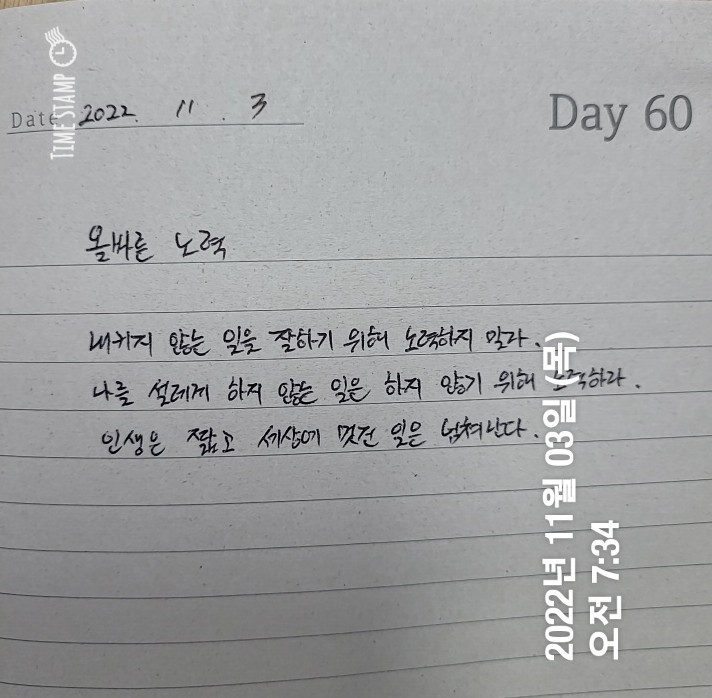 TIMESTAMP
Date 2022. 11. 3
Day 60
올바른 노력
내키지 않는 일을 잘하기 위해 노력하지 말라.
나를 설레게 하지 않는 일은 하지 않기 위해 노력하라.
인생은 짧고 세상에 멋진 일은 넘쳐난다.
2022년 11월 03일 (목)
오전 7:34